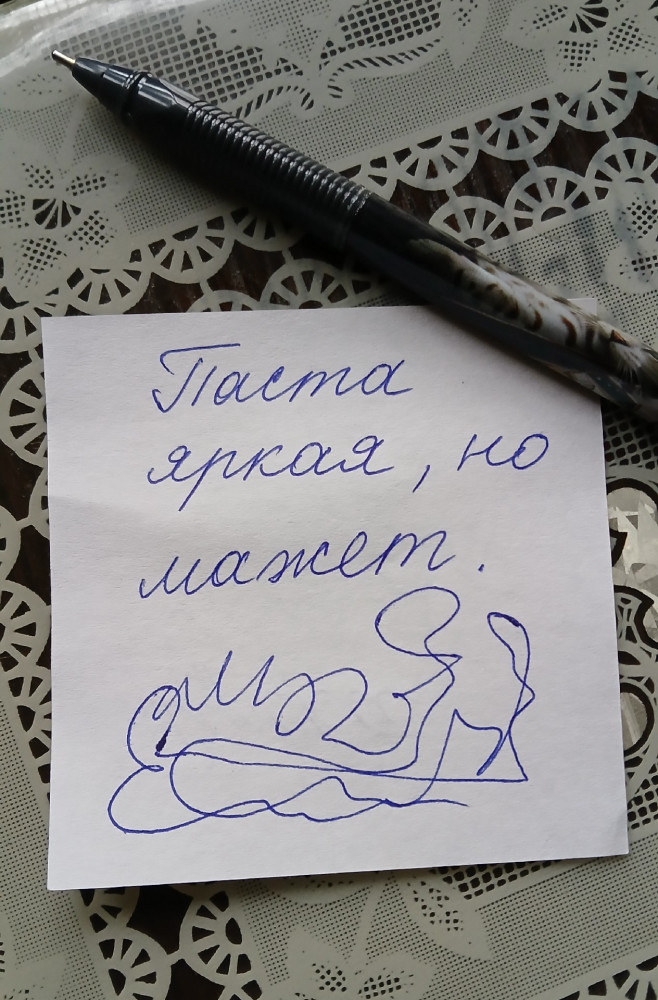 Паста
яркая, но
мажет.